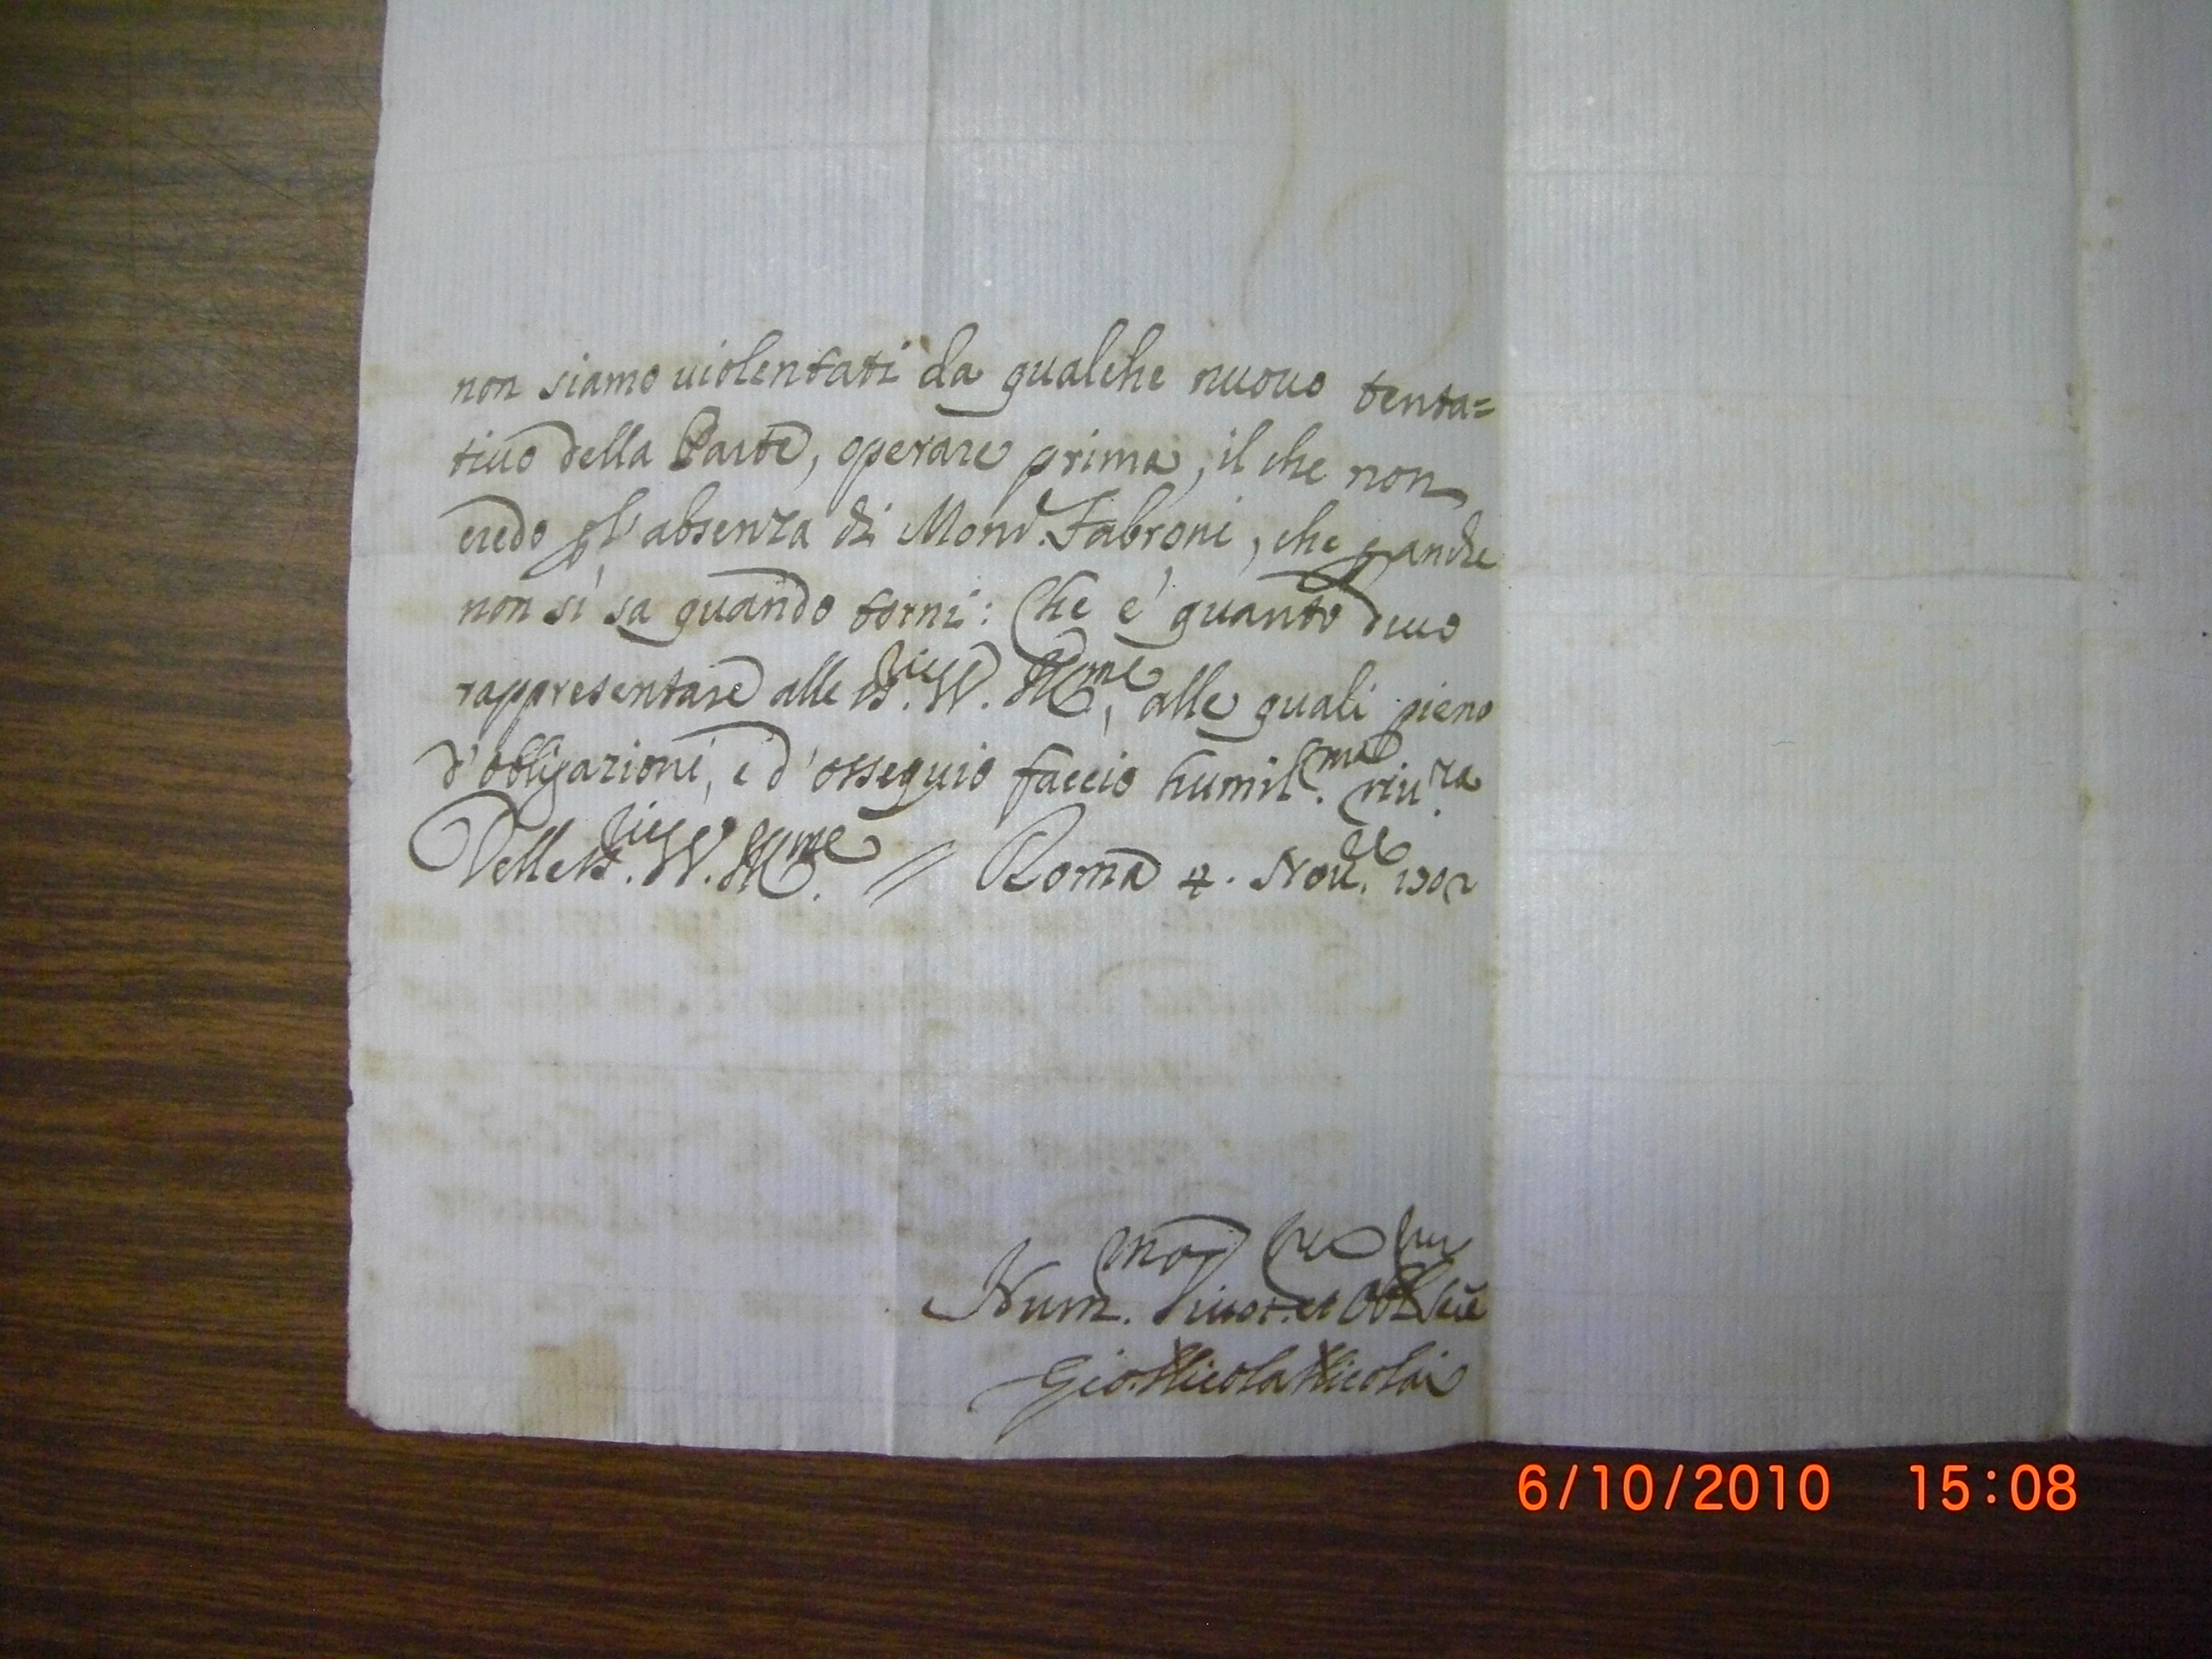 non siamo uiolentati da qualche nuouo tenta=
tiuo della Parte, operare prima, il che non
credo p l'absenza di Mons.r Fabroni, che p anche
non si sa quando torni: Che è quanto deuo
rappresentare alle VV. Ill.me, alle quali pieno
d'obligazioni, e d'ossequio faccio humil.ma riu.za
Delle VV. Ill.me // Roma 4. Nou.e 1702
Hum.mo Diuot.mo et Obl.mo Ser.e
Gio: Nicola Nicolai
6/10/2010 15:08